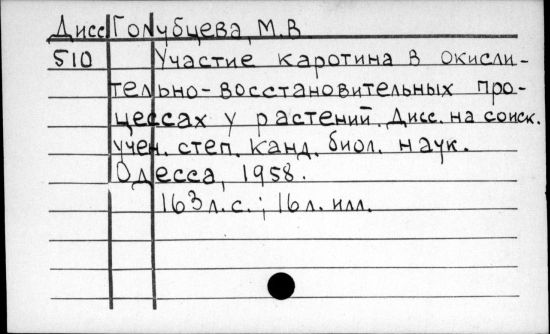 Дисс Голубцева, М.В
510 Участие каротина в окисли-
тельно-восстановительных про-
цессах у растений. Дисс. на соиск.
учен. степ. канд. биол. наук.
Одесса, 1958.
163 л. с.; 16 л. илл.